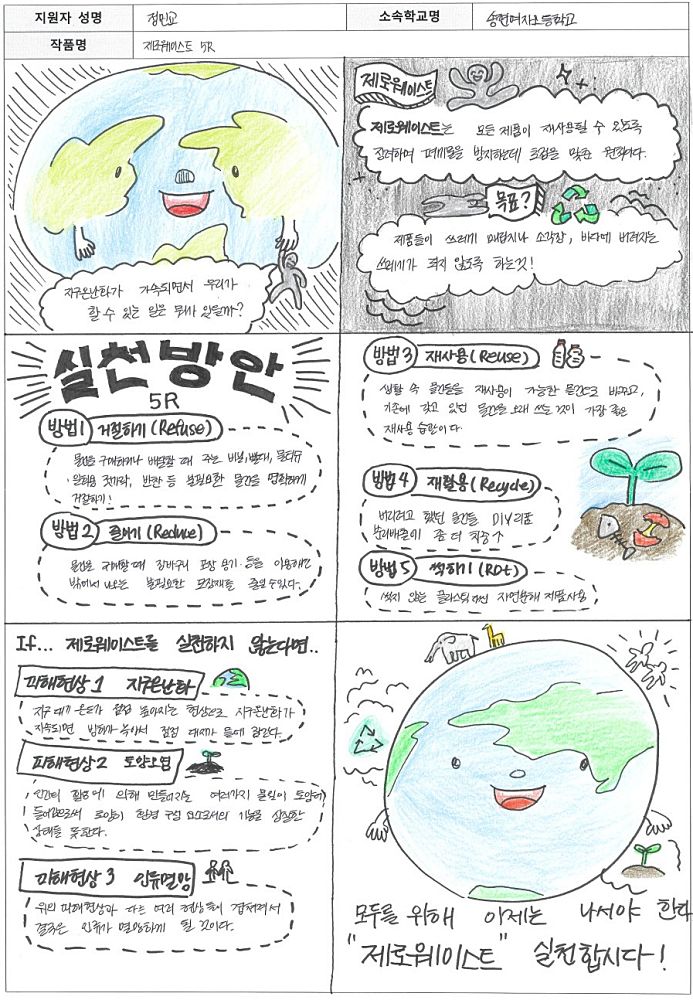 지원자 성명
정민교
소속학교명
송현여자고등학교
작품명
제로웨이스트 5R
지구온난화가 가속되면서 우리가
할 수 있는 일은 뭐가 있을까?
제로웨이스트
제로웨이스트는 모든 제품이 재사용될 수 있도록
장려하며 폐기물을 방지하는데 초점을 맞춘 원칙이다.
목표?
제품들이 쓰레기 매립지나 소각장, 바다에 버려지는
쓰레기가 되지 않도록 하는것!
실천방안
5R
방법1 거절하기 (Refuse)
물건을 구매하거나 배달할 때 주는 비닐, 빨대, 물티슈
일회용 젓가락, 반찬 등 불필요한 물건을 명확하게
거절하기!
방법2 줄이기 (Reduce)
물건을 구매할 때 장바구니 포장 용기 등을 이용해
밖에서 나오는 불필요한 포장재를 줄일 수 있다.
방법3 재사용 (Reuse)
생활 속 물건들을 재사용이 가능한 물건으로 바꾸고,
기존에 갖고 있던 물건을 오래 쓰는 것이 가장 좋은
재사용 습관이다.
방법4 재활용 (Recycle)
버리려고 했던 물건들 DIY 리폼
분리배출이 좀 더 적응↑
방법5 썩히기 (ROt)
썩지 않는 플라스틱 대신 자연분해 제품 사용
If... 제로웨이스트를 실천하지 않는다면..
피해현상1 지구온난화
지구 대기 온도가 점점 높아지는 현상으로 지구온난화가
지속되면 빙하가 녹아서 점점 대지가 물에 잠긴다.
피해현상2 토양오염
인간의 활동에 의해 만들어지는 여러가지 물질이 토양에
들어감으로써 토양이 환경 구성 요소로서의 기능을 상실한
상태를 뜻한다.
피해현상3 인류멸망
위의 피해현상과 다른 여러 현상들이 겹쳐져서
결국은 인류가 멸망하게 될 것이다.
모두를 위해 이제는 나서야 한다
"제로웨이스트" 실천합시다!